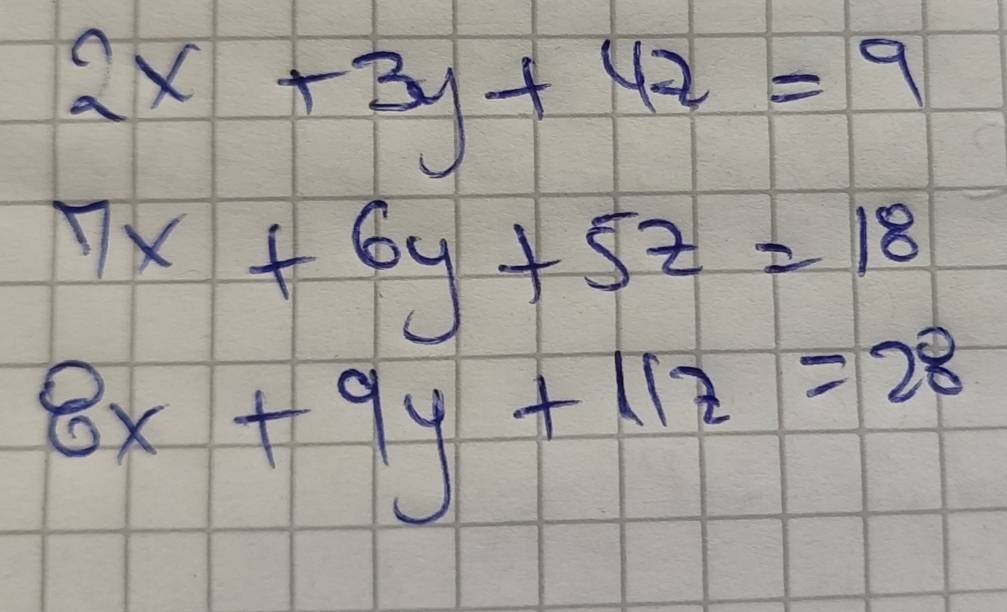 2x + 3y + 4z = 9
7x + 6y + 5z = 18
8x + 9y + 11z = 28